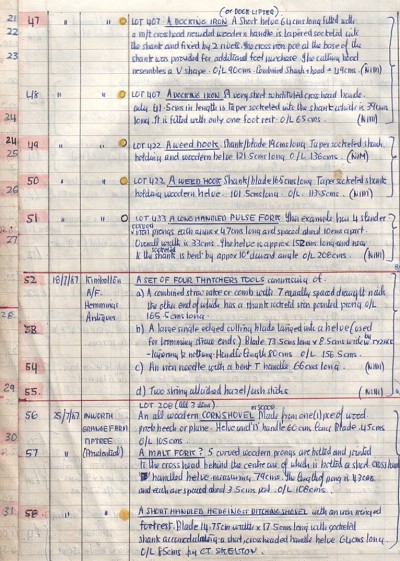 (or DOCK LIFTER)
47 " " LOT 407 A DOCKING IRON A short helve 64cms long fitted with
a m/t crosshead rounded wooden handle is tapered socketed into
the shank and fixed by 2 rivets. The cross iron at the base of the
shank was provided for additional foot purchase. The cutting head
resembles a V shape. O/L 90cms. Combined Shank + head = 49cms. (NIM)
48 " " LOT 407 A DOCKING IRON A very short substituted cross head handle
only 41.5cms in length is taper socketed into the shank which is 39cms
long. It is fitted with only one foot rest. O/L 65cms. (NIM)
49 " " LOT 422 A WEED HOOK. Shank/blade 14cms long. Taper socketed shank
holding wooden helve 121.5cms long O/L 136cms. (NIM)
50 " " LOT 422 A WEED HOOK Shank/blade 16.5cms long Taper socketed shank
holding wooden helve 101.5cms long. O/L 117.5cms. (NIM)
51 " " LOT 433 A LONG HANDLED PULSE FORK This example has 4 slender
curved iron prongs each approx 47cms long and spaced about 10cms apart.
Overall width is 33cms. The helve is approx 152cms long and
the shank is bent by approx 10° O/L 208cms. (NIM)
52 18/7/67 Kimbolton A SET OF FOUR THATCHERS TOOLS comprising of:
A/F. a) A combined straw rake or comb with 7 equally spaced teeth
Hemmings the other end of which has a shank socketed iron pointed prong O/L
Antiques 165.5cms long.
53 b) A large single edged cutting blade tanged into a helve (used
for trimming straw ends) Blade 73.5cms long x 8.5cms wide
Handle length 80cms. O/L 156.5cms.
54 c) An iron needle with a bent T handle 66cms long. (NIM)
55. d) Two string attached hazel/ash sticks (NIM)
LOT 208 (All 3 items)
56 25/7/67 INWORTH An all wooden CORN SHOVEL or SCOOP Made from one (1) piece of wood.
GRANGE FARM Helve and D handle 60cms long Blade 45cms
TIPTREE O/L 105cms.
57 (Prudential) A MALT FORK? 5 curved wooden prongs are bolted and jointed
to the cross head behind the centre one of which is bolted a short crosshead
handled helve measuring 79cms. The length of prong is 43cms
and each are spaced about 3.5cms O/L 108cms.
58 " " A SHORT HANDLED HEDGING & DITCHING SHOVEL with an iron
footrest. Blade 14.75cm width x 17.5cms long with socketed
shank accomodating a short crossheaded handle helve 64cms long.
O/L 85cms by C.T. SKELTON.
21
22
23
24
24
25
26
27
28
29
30
31